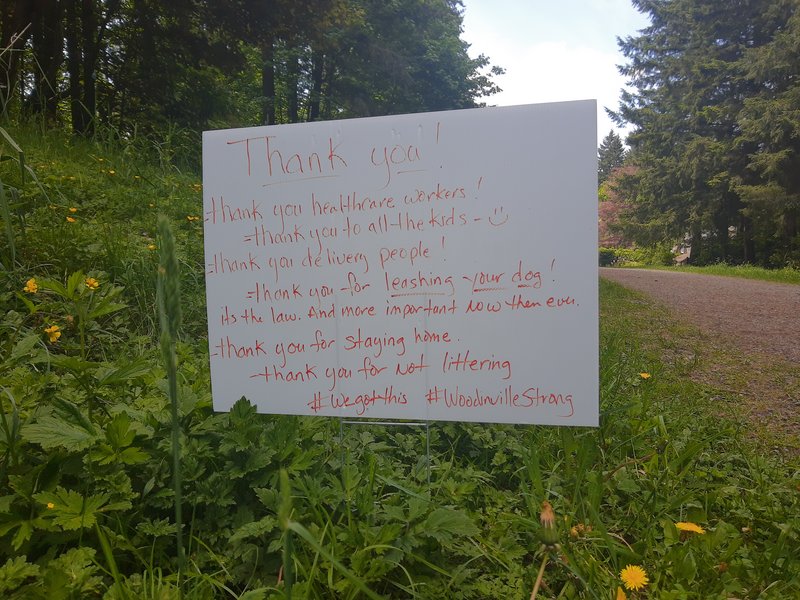 Thank you!
-thank you healthcare workers!
-thank you to all the kids - :)
-thank you delivery people!
-thank you for leashing your dog!
its the law. And more important now then ever.
-thank you for staying home.
-thank you for not littering
#Wegotthis #WoodinvilleStrong